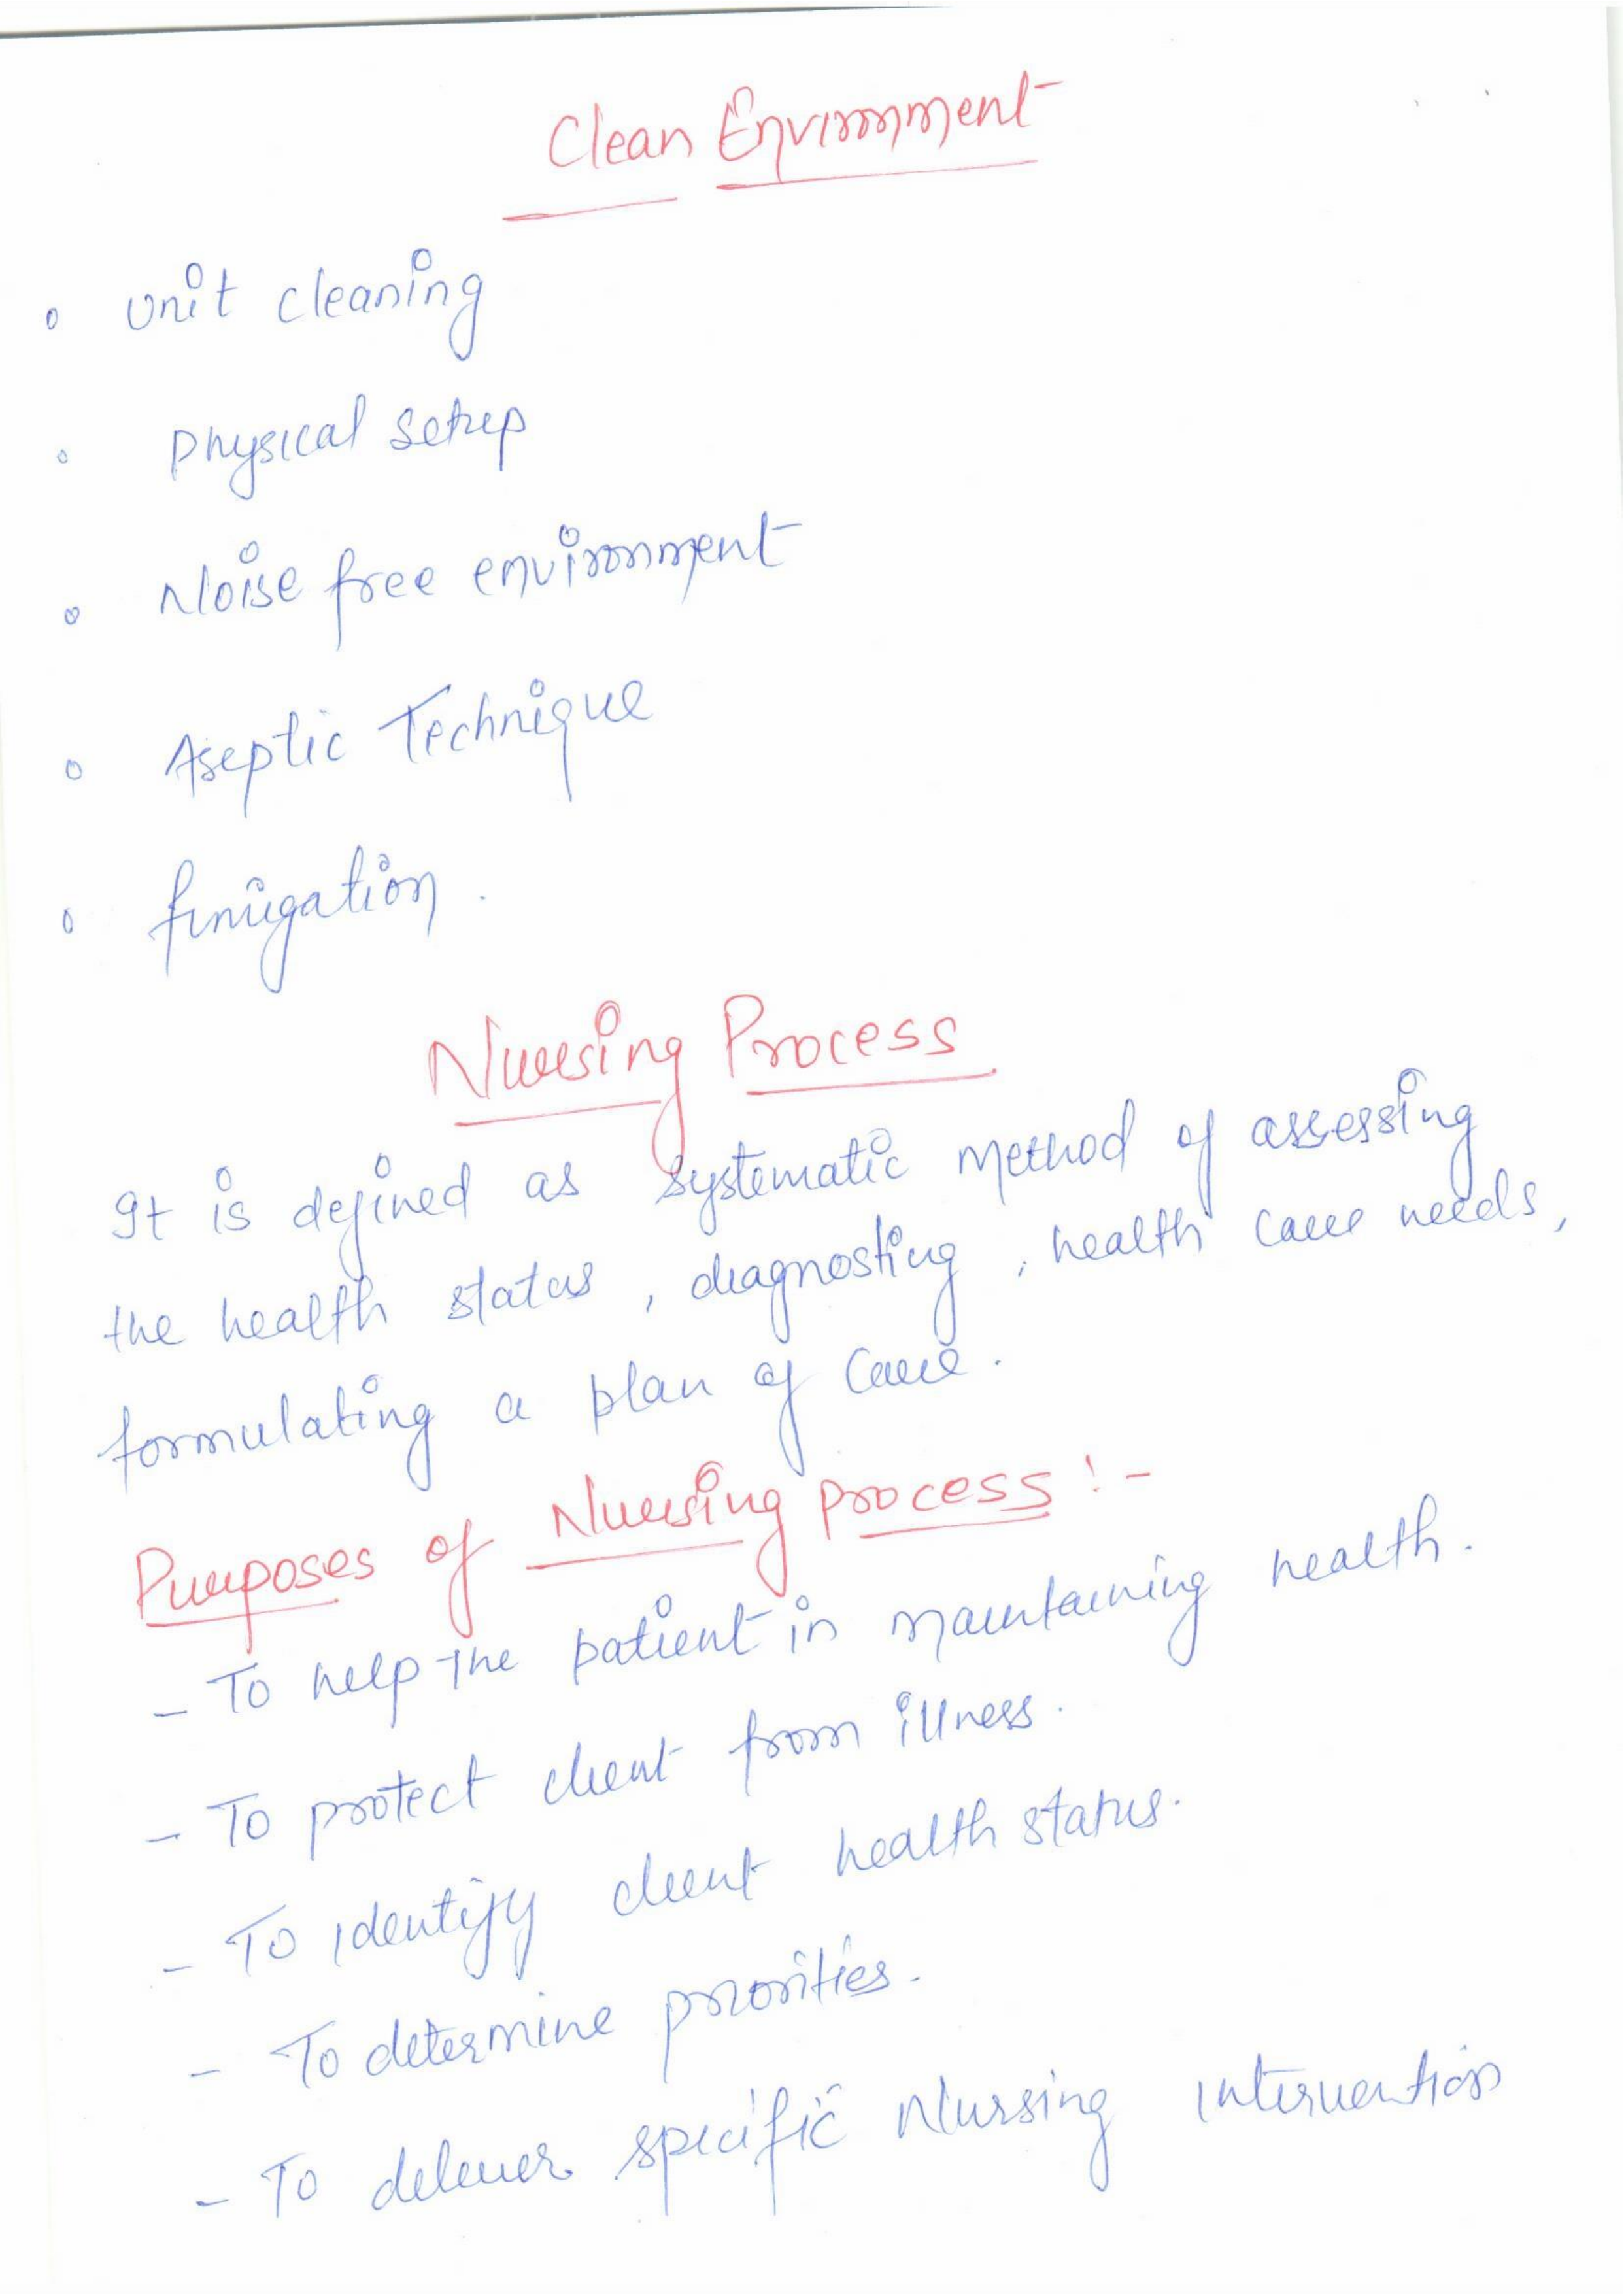 Clean Environment
• Unit cleaning
• Physical setup
• Noise free environment
• Aseptic Technique
• fumigation.
Nursing Process
It is defined as systematic method of assessing
the health status, diagnosting, health care needs,
formulating a plan of care.
Purposes of Nursing process:-
- To help the patient in maintaining health.
- To protect client from illness.
- To identify client health status.
- To determine priorities.
- To deliver specific Nursing intervention